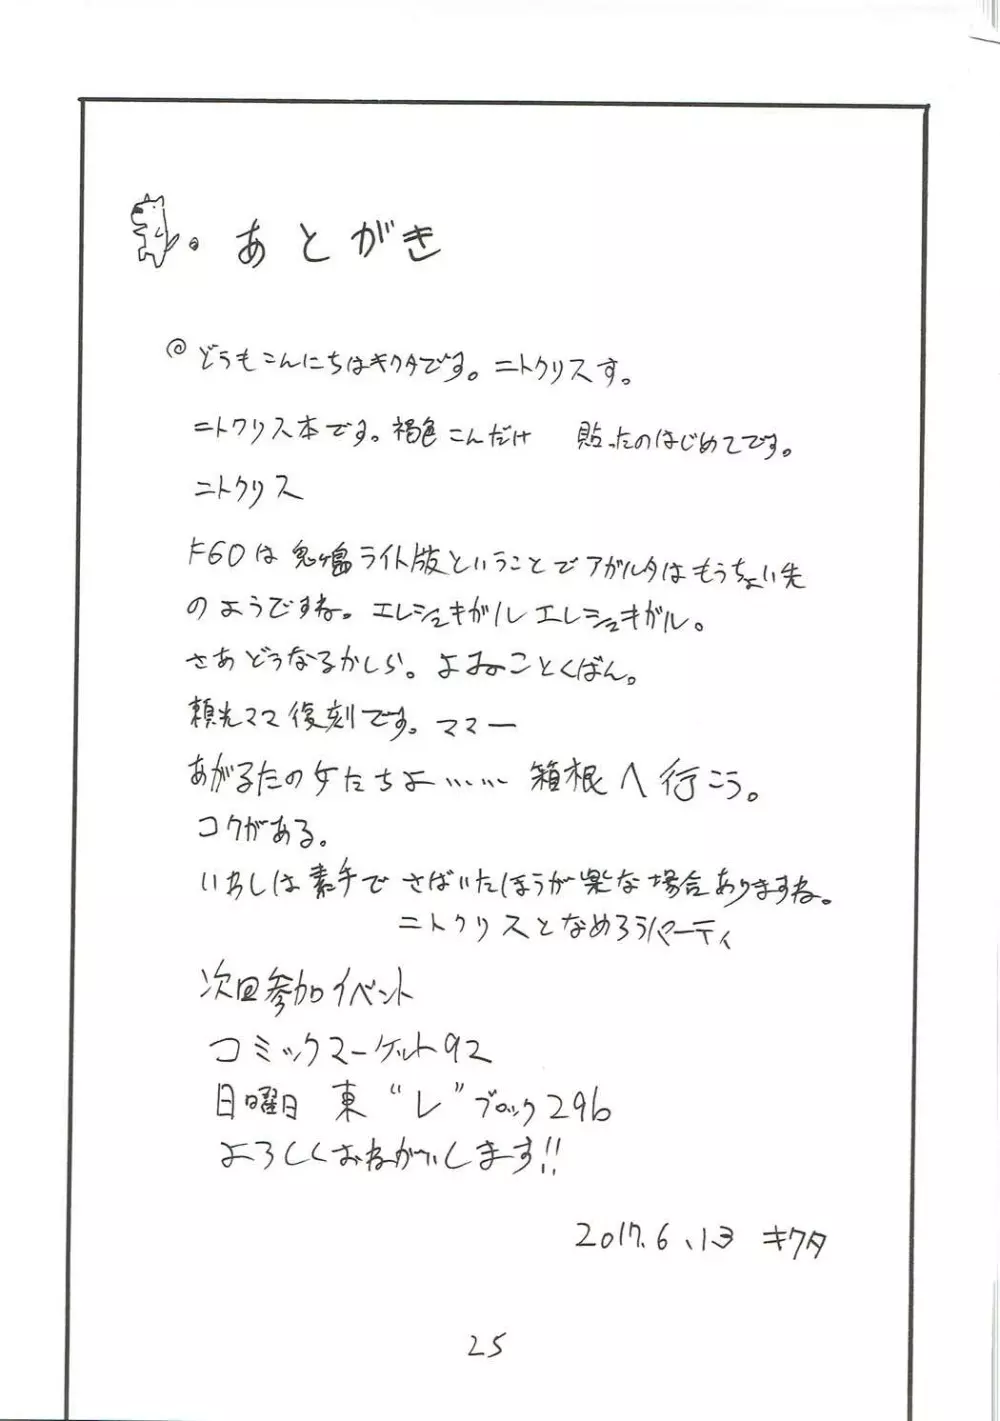 あとがき
@どうもこんにちはキクタです。ニトクリスす。
ニトクリス本です。褐色こんだけ 貼ったのはじめてです。
ニトクリス
FGOは鬼ヶ島ライト版ということでアガルタはもうちょい先
のようですね。エレシュキガル エレシュキガル。
さあどうなるかしら。よみのことくばん。
頼光ママ復刻です。ママー
あがるたの女たちよ…… 箱根へ行こう。
コクがある。
いわしは素手でさばいたほうが楽な場合ありますね。
ニトクリスとなめろうパーティ
次回参加イベント
コミックマーケット92
日曜日 東 "レ" ブロック29b
よろしくおねがいします!!
2017.6.13 キクタ
25